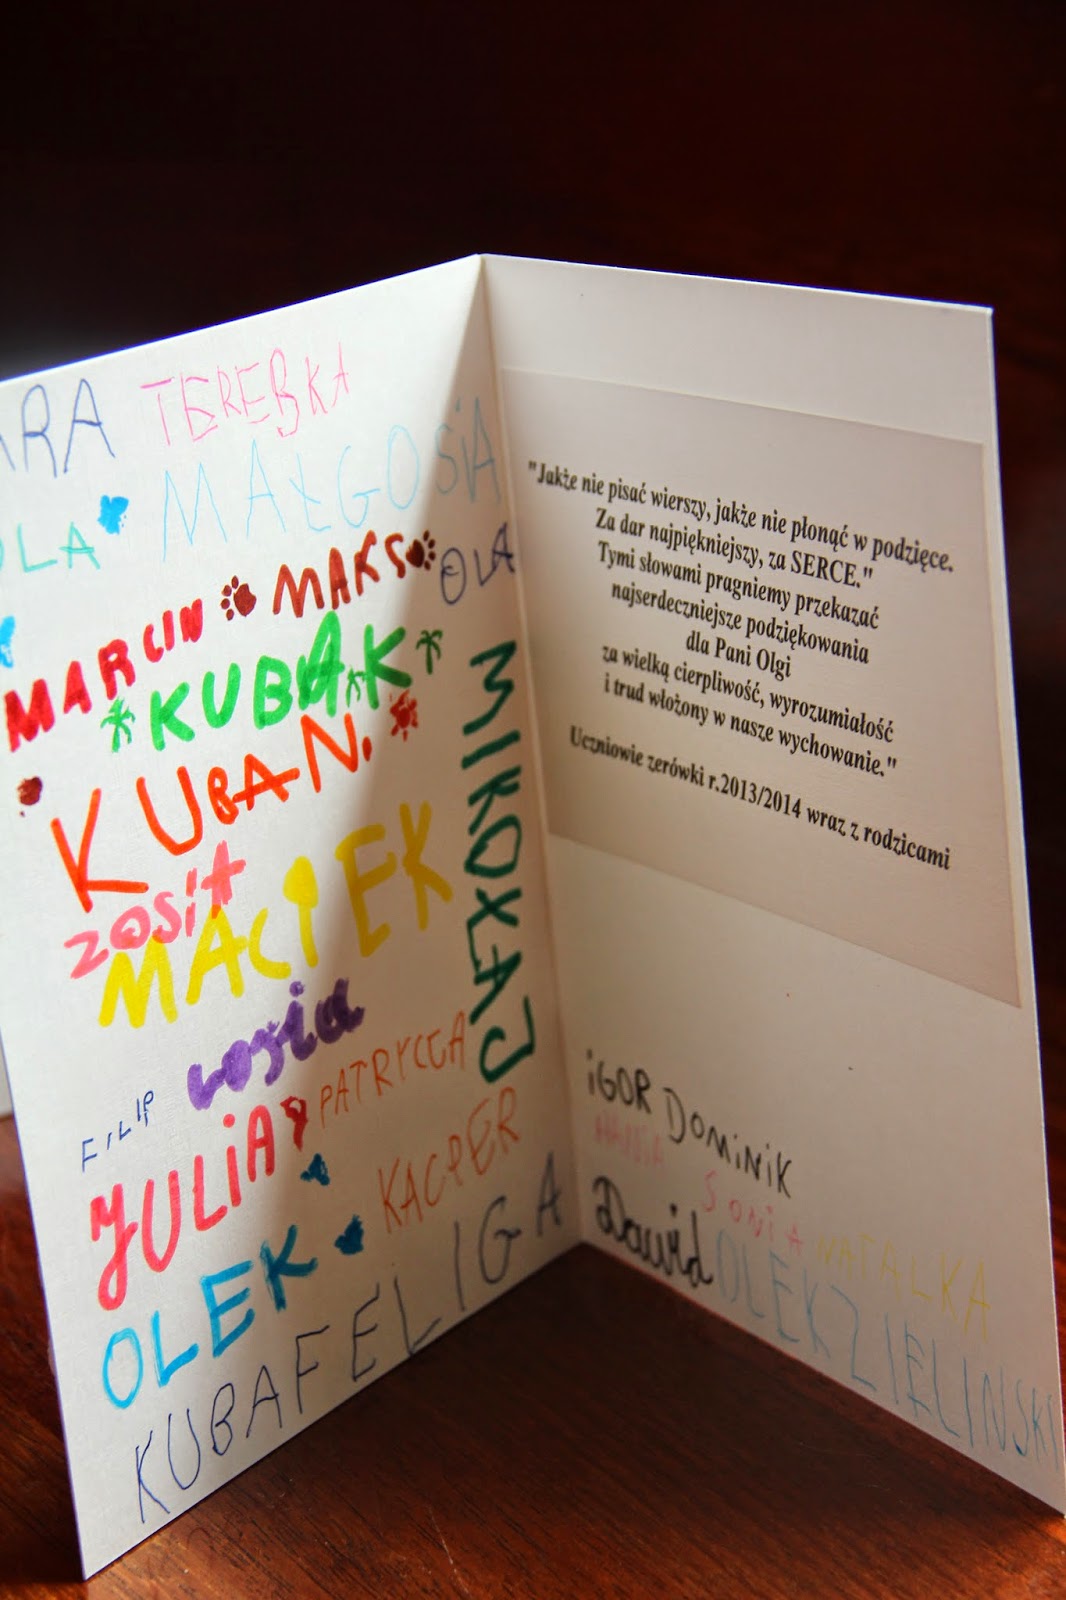 TEREBKA
MAŁGOSIA
OLA
MARCIN MAKS OLA
KUBAK
KUBAN.
MIKOŁAJ
ZOSIA
MACIEK
zosia
FILIP
PATRYCJA
JULIA
KACPER
OLEK
KUBAFELIGA
"Jakże nie pisać wierszy, jakże nie płonąć w podzięce.
Za dar najpiękniejszy, za SERCE."
Tymi słowami pragniemy przekazać
najserdeczniejsze podziękowania
dla Pani Olgi
za wielką cierpliwość, wyrozumiałość
i trud włożony w nasze wychowanie."
Uczniowie zerówki r.2013/2014 wraz z rodzicami
IGOR DOMINIK
HANIA SONIA NATALKA
Dawid OLEK ZIELINSKI